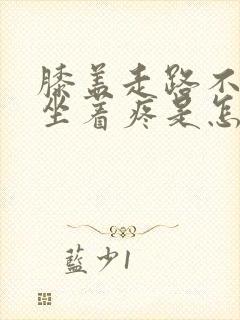 膝盖走路不
坐着疼是怎
藍少1